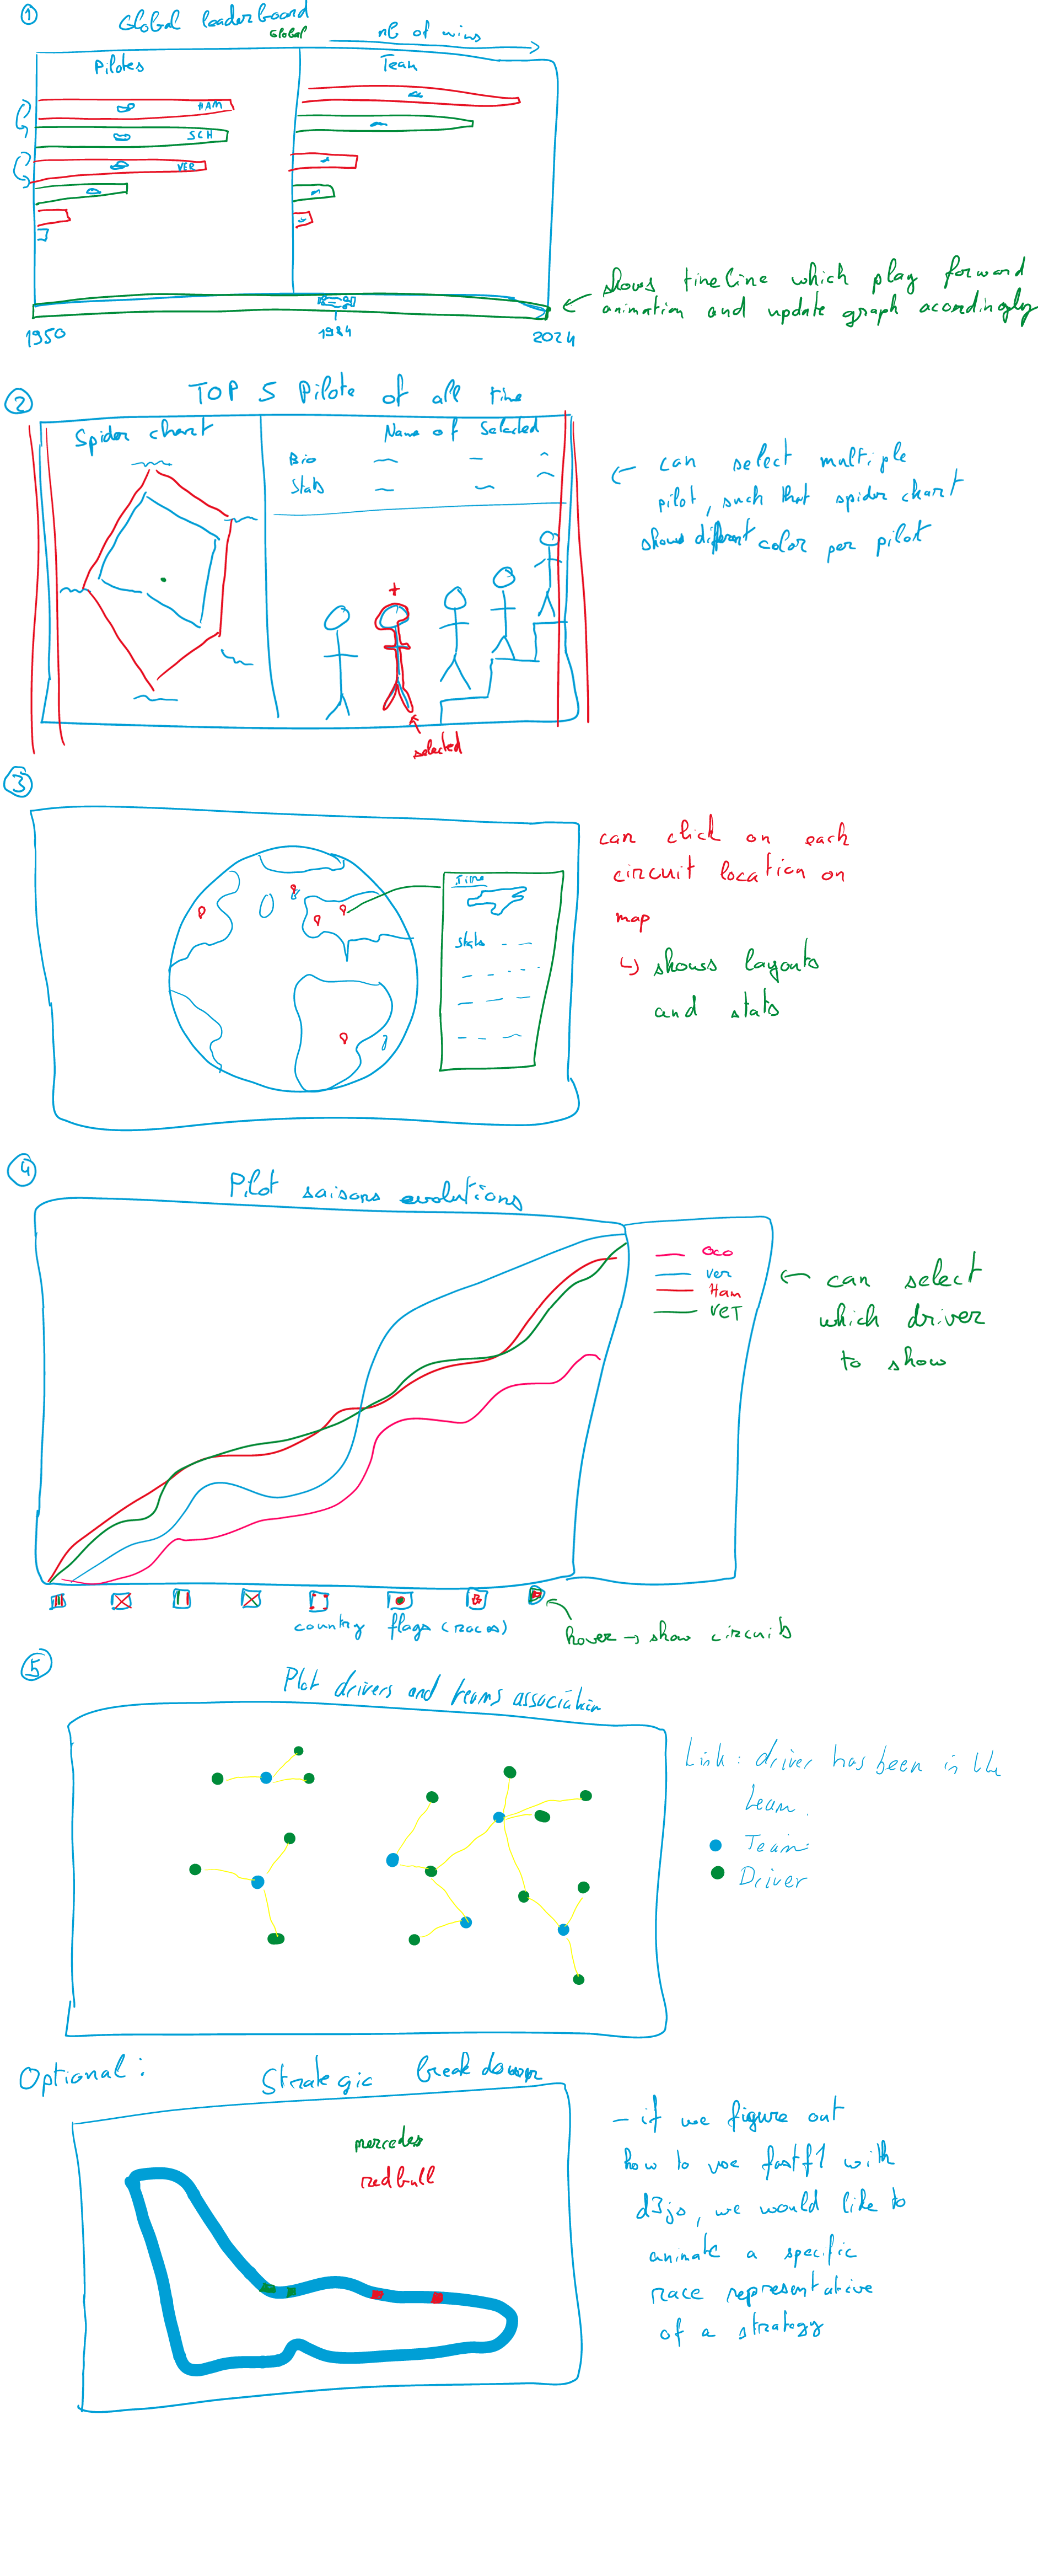 1
Global leaderboard
Global
nb of wins
Pilotes
Team
HAM
SCH
VER
1950
1984
2024
shows timeline which play forward
animation and update graph acordingly
2
TOP 5 Pilote of all time
Spider chart
Name of Selected
Bio
Stats
+
selected
can select multiple
pilot, such that spider chart
shows different color per pilot
3
Stats
can click on each
circuit location on
map
↳ shows layouts
and stats
4
Pilot saisons evolutions
OCO
Ver
Ham
VET
can select
which driver
to show
country flags (races)
hover → show circuits
5
Plot drivers and teams association
Link : driver has been in the
team.
Team
Driver
Optional :
Strategic breakdown
mercedes
redbull
- if we figure out
how to use fastf1 with
d3js, we would like to
animate a specific
race representative
of a strategy